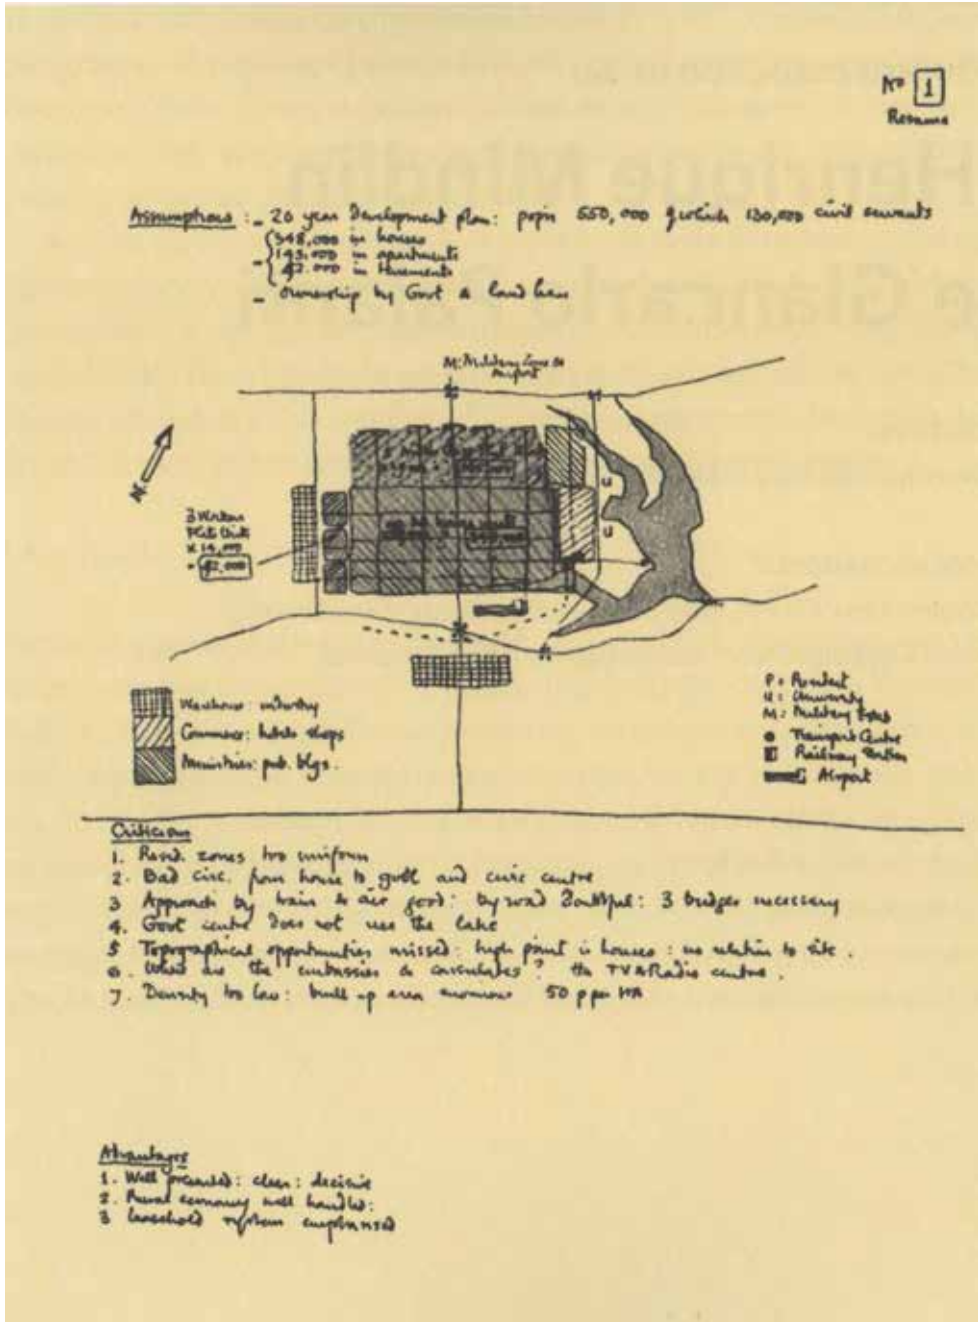 No 1
Resume
Assumptions : - 20 year Development plan: popn 550,000 of which 130,000 civil servants
348,000 in houses
in apartments
in tenements
- ownership by Govt & land
M: Military Zone &
Airport
N
U
U
3 Workers
Flats Units
x 14,000
= 42,000
Warehouse: industry
Commerce: hotels shops
Ministries: pub. blgs.
P: President
U: University
M: Military
Transport Centre
Railway Station
Airport
Criticism
1. Resid. zones too uniform
2. Bad circ. from house to govt and civic centre
3 Approach by train & air good: by road doubtful: 3 bridges necessary
4. Govt centre does not use the lake
5 Topographical opportunities missed: high point is houses: no relation to site.
6. Where are the embassies & consulates? the TV & Radio centre.
7. Density too low: built up area enormous 50 p per HA
Advantages
1. Well presented: clear: decisive
2. Rural economy well handled:
3 leasehold system emphasised